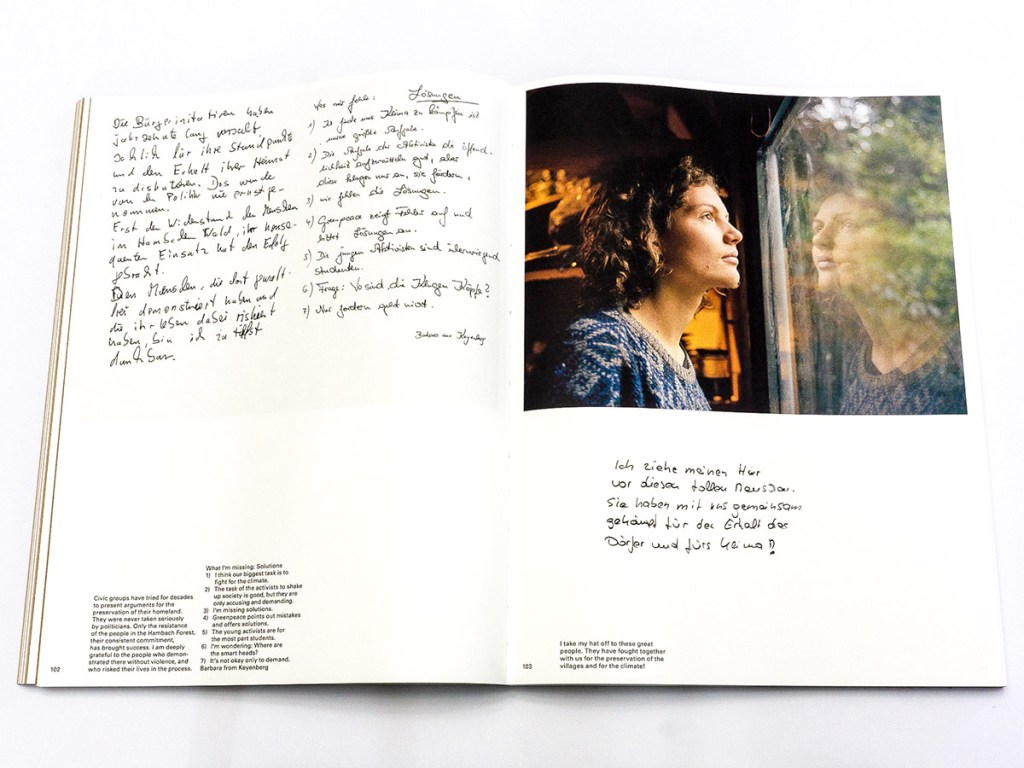 Die Bürgerinitiativen haben
jahrzehnte lang versucht
sachlich für ihre Standpunkte
und den Erhalt ihrer Heimat
zu diskutieren. Das wurde
von der Politik nie ernst ge-
nommen.
Erst der Widerstand der Menschen
im Hambacher Wald, ihr konse-
quenter Einsatz hat den Erfolg
gebracht.
Den Menschen, die dort gewalt-
frei demonstriert haben und
die ihr Leben dabei riskiert
haben, bin ich zu tiefst
dankbar.
Was mir fehlt: Lösungen
1) Ich finde ums Klima zu kämpfen ist
unsere größte Aufgabe.
2) Die Aufgabe der Aktivisten die Öffent-
lichkeit aufzurütteln gut, aber
diese klagen nur an, sie fordern,
3) mir fehlen die Lösungen.
4) Greenpeace zeigt Fehler auf und
bietet Lösungen an.
5) Die jungen Aktivisten sind überwiegend
Studenten.
6) Frage: Wo sind die klugen Köpfe?
7) Nur fordern geht nicht.
Barbara aus Keyenberg
Ich ziehe meinen Hut
vor diesen tollen Menschen.
Sie haben mit uns gemeinsam
gekämpft für den Erhalt der
Dörfer und fürs Klima!
Civic groups have tried for decades
to present arguments for the
preservation of their homeland.
They were never taken seriously
by politicians. Only the resistance
of the people in the Hambach Forest,
their consistent commitment,
has brought success. I am deeply
grateful to the people who demon-
strated there without violence, and
who risked their lives in the process.
What I'm missing: Solutions
1) I think our biggest task is to
fight for the climate.
2) The task of the activists to shake
up society is good, but they are
only accusing and demanding.
3) I'm missing solutions.
4) Greenpeace points out mistakes
and offers solutions.
5) The young activists are for
the most part students.
6) I'm wondering: Where are
the smart heads?
7) It's not okay only to demand.
Barbara from Keyenberg
102
103
I take my hat off to these great
people. They have fought together
with us for the preservation of the
villages and for the climate!